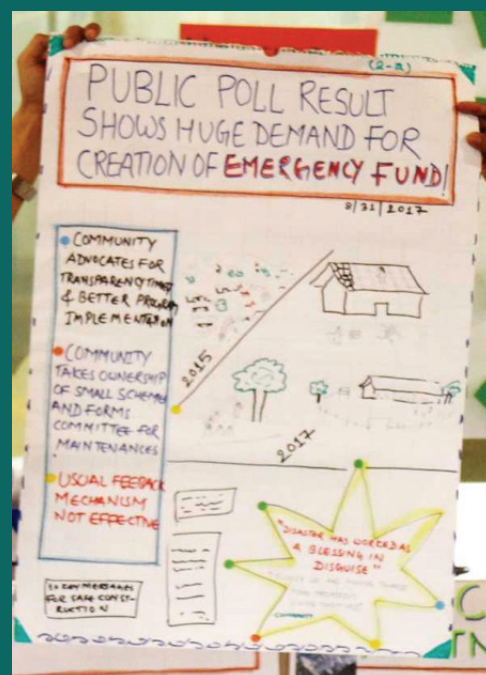 (2-a)
PUBLIC POLL RESULT
SHOWS HUGE DEMAND FOR
CREATION OF EMERGENCY FUND!
8/31/2017
COMMUNITY
ADVOCATES FOR
TRANSPARENCY
& BETTER PROGRAM
IMPLEMENTATION
COMMUNITY
TAKES OWNERSHIP
OF SMALL SCHEME
AND FORMS
COMMITTEE FOR
MAINTENANCES
USUAL FEEDBACK
MECHANISM
NOT EFFECTIVE
10 KEY MESSAGES
FOR SAFE CONST-
RUCTION
2015
2017
"DISASTER HAS WORKED AS
A BLESSING IN
DISGUISE"
COMMUNITY